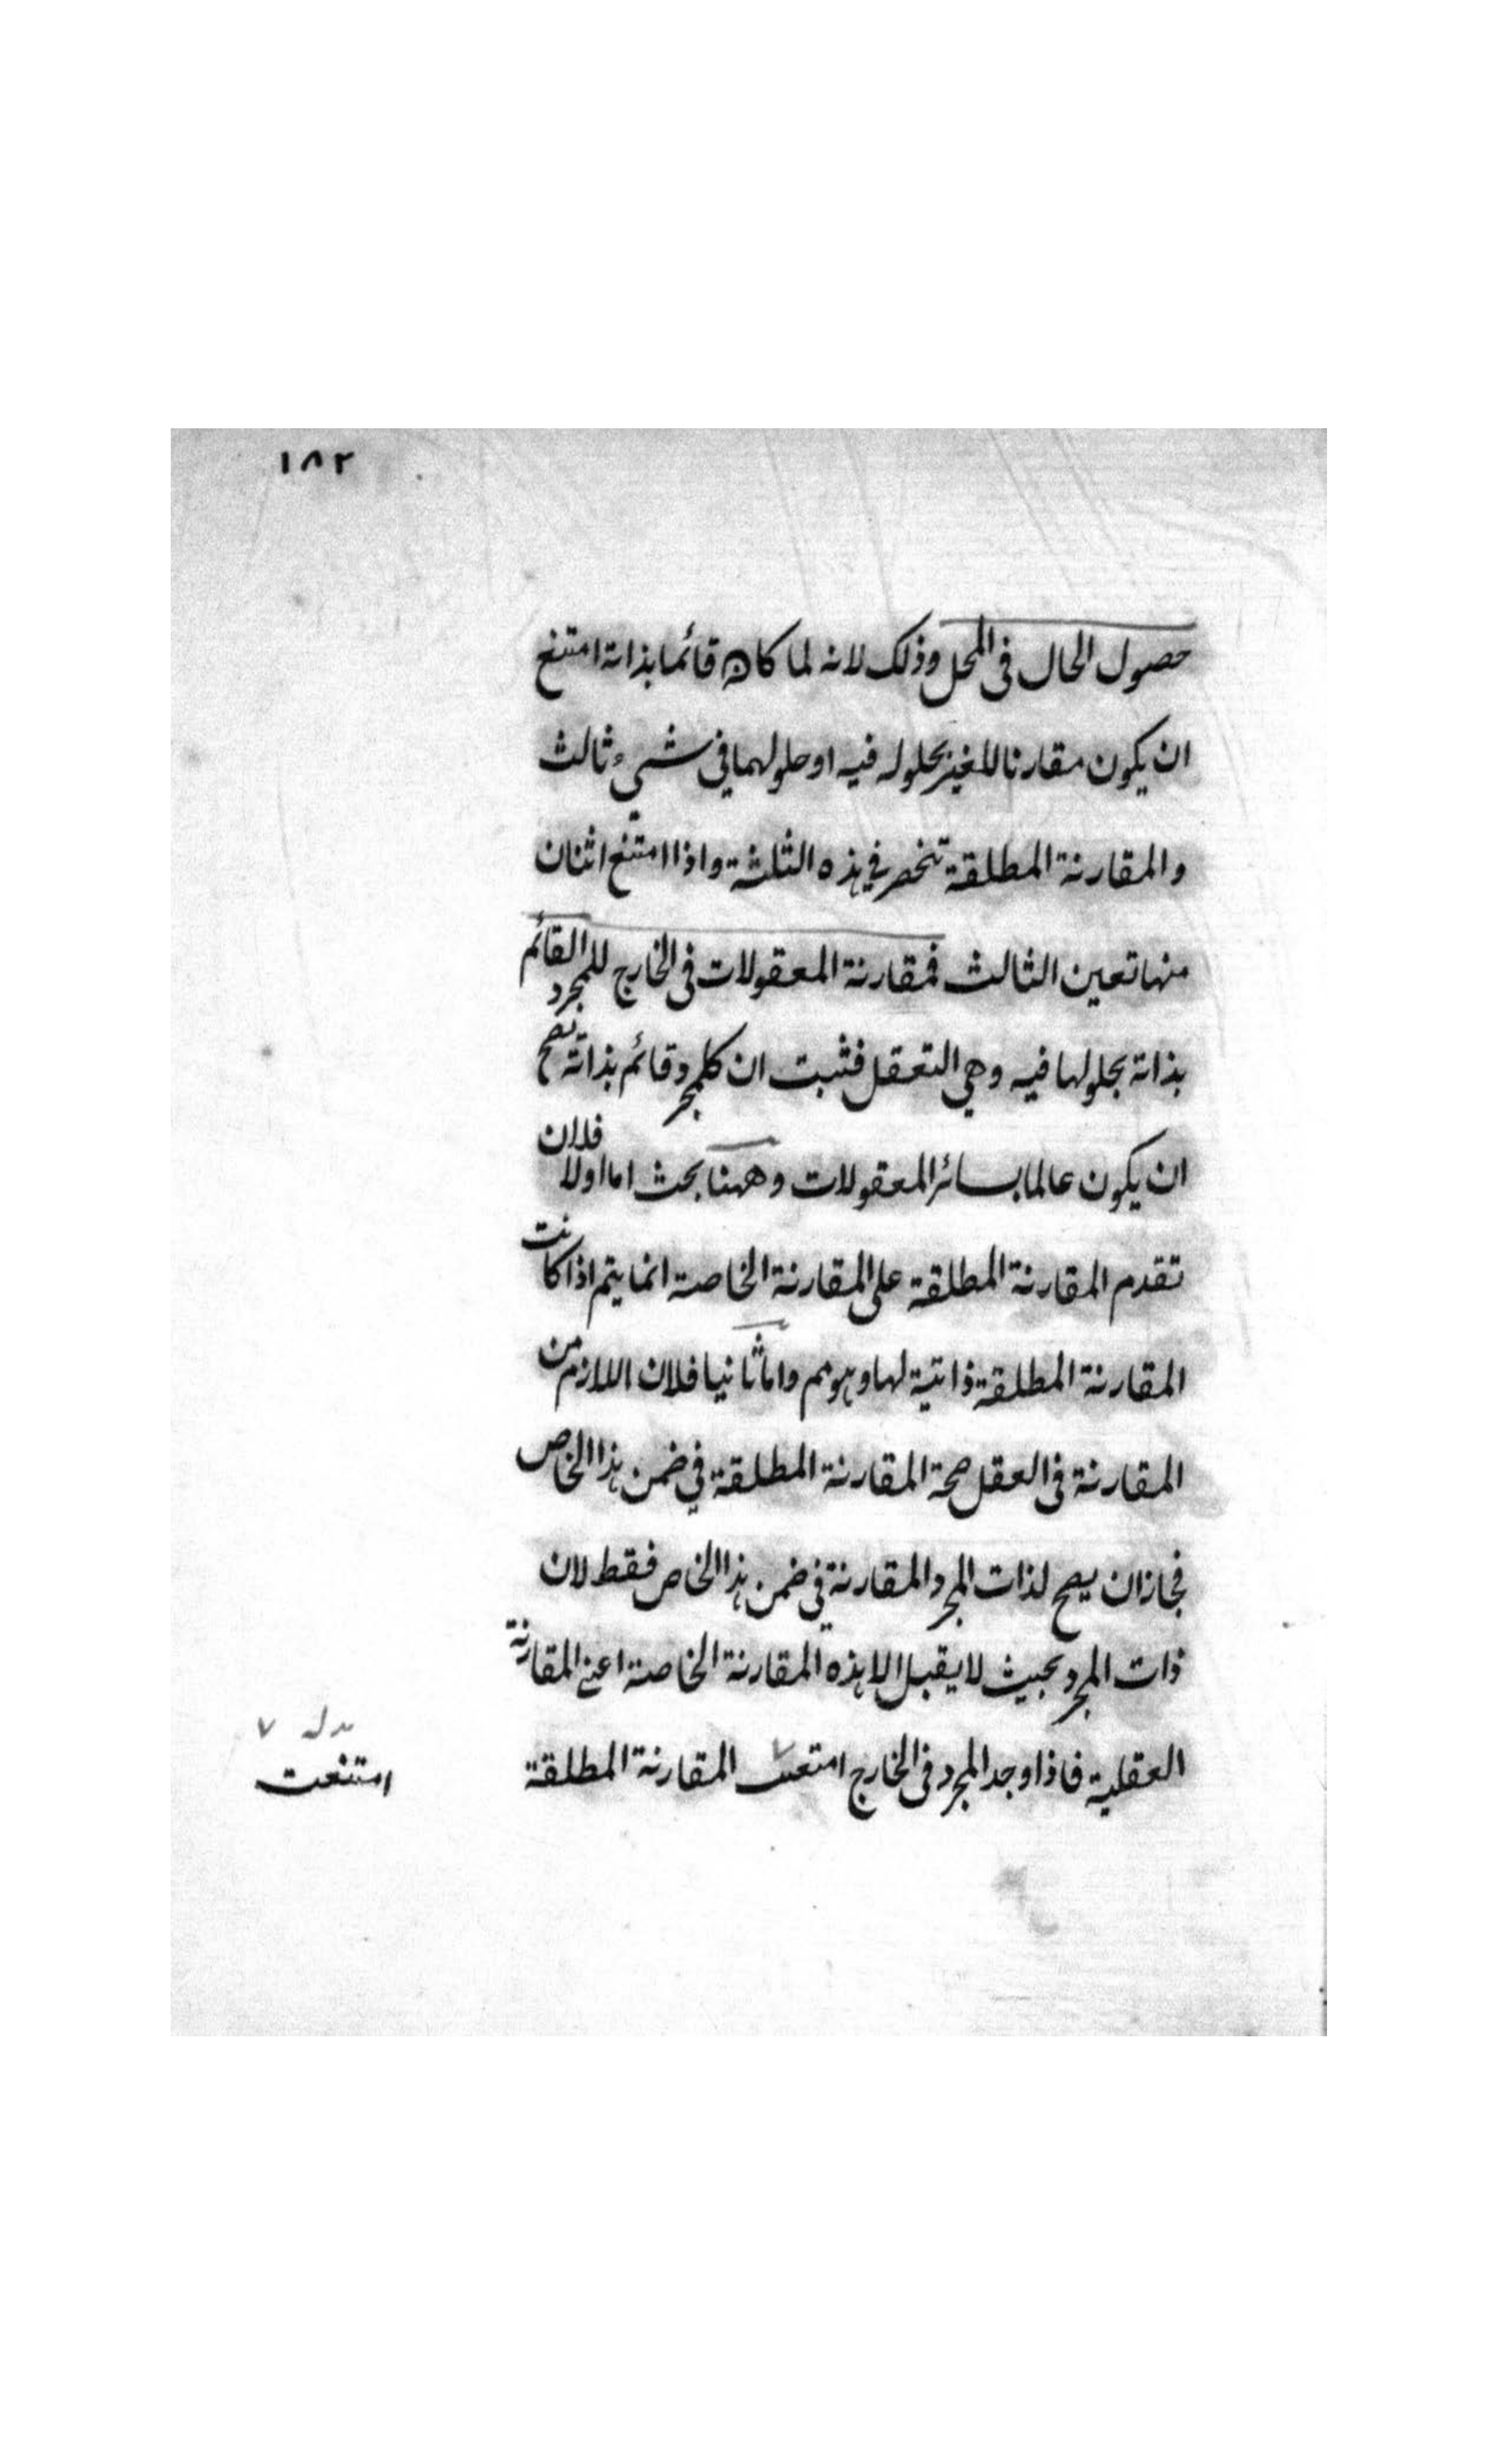 ١٨٢
حصول الحال فى المحل وذلك لانه لما كان قائما بذاته امتنع
ان يكون مقارنا للغير بحلوله فيه او حلولهما فى شىء ثالث
والمقارنة المطلقة تنحصر فى هذه الثلثة واذا امتنع اثنان
منها تعين الثالث فمقارنة المعقولات فى الخارج للمجرد القائم
بذاته بحلولها فيه وهى التعقل فثبت ان كل مجرد قائم بذاته يصح
ان يكون عالما بسائر المعقولات وههنا بحث اما اولا فلان
تقدم المقارنة المطلقة على المقارنة الخاصة انما يتم اذا كانت
المقارنة المطلقة ذاتية لها وهو مم واما ثانيا فلان اللازم من
المقارنة فى العقل صحة المقارنة المطلقة فى ضمن هذا الخاص
فجاز ان يصح لذات المجرد المقارنة فى ضمن هذا الخاص فقط لان
ذات المجرد بحيث لا يقبل الا هذه المقارنة الخاصة اعنى المقارنة
العقلية فاذا وجد المجرد فى الخارج امتنعت المقارنة المطلقة
بدله ٧
امتنعت